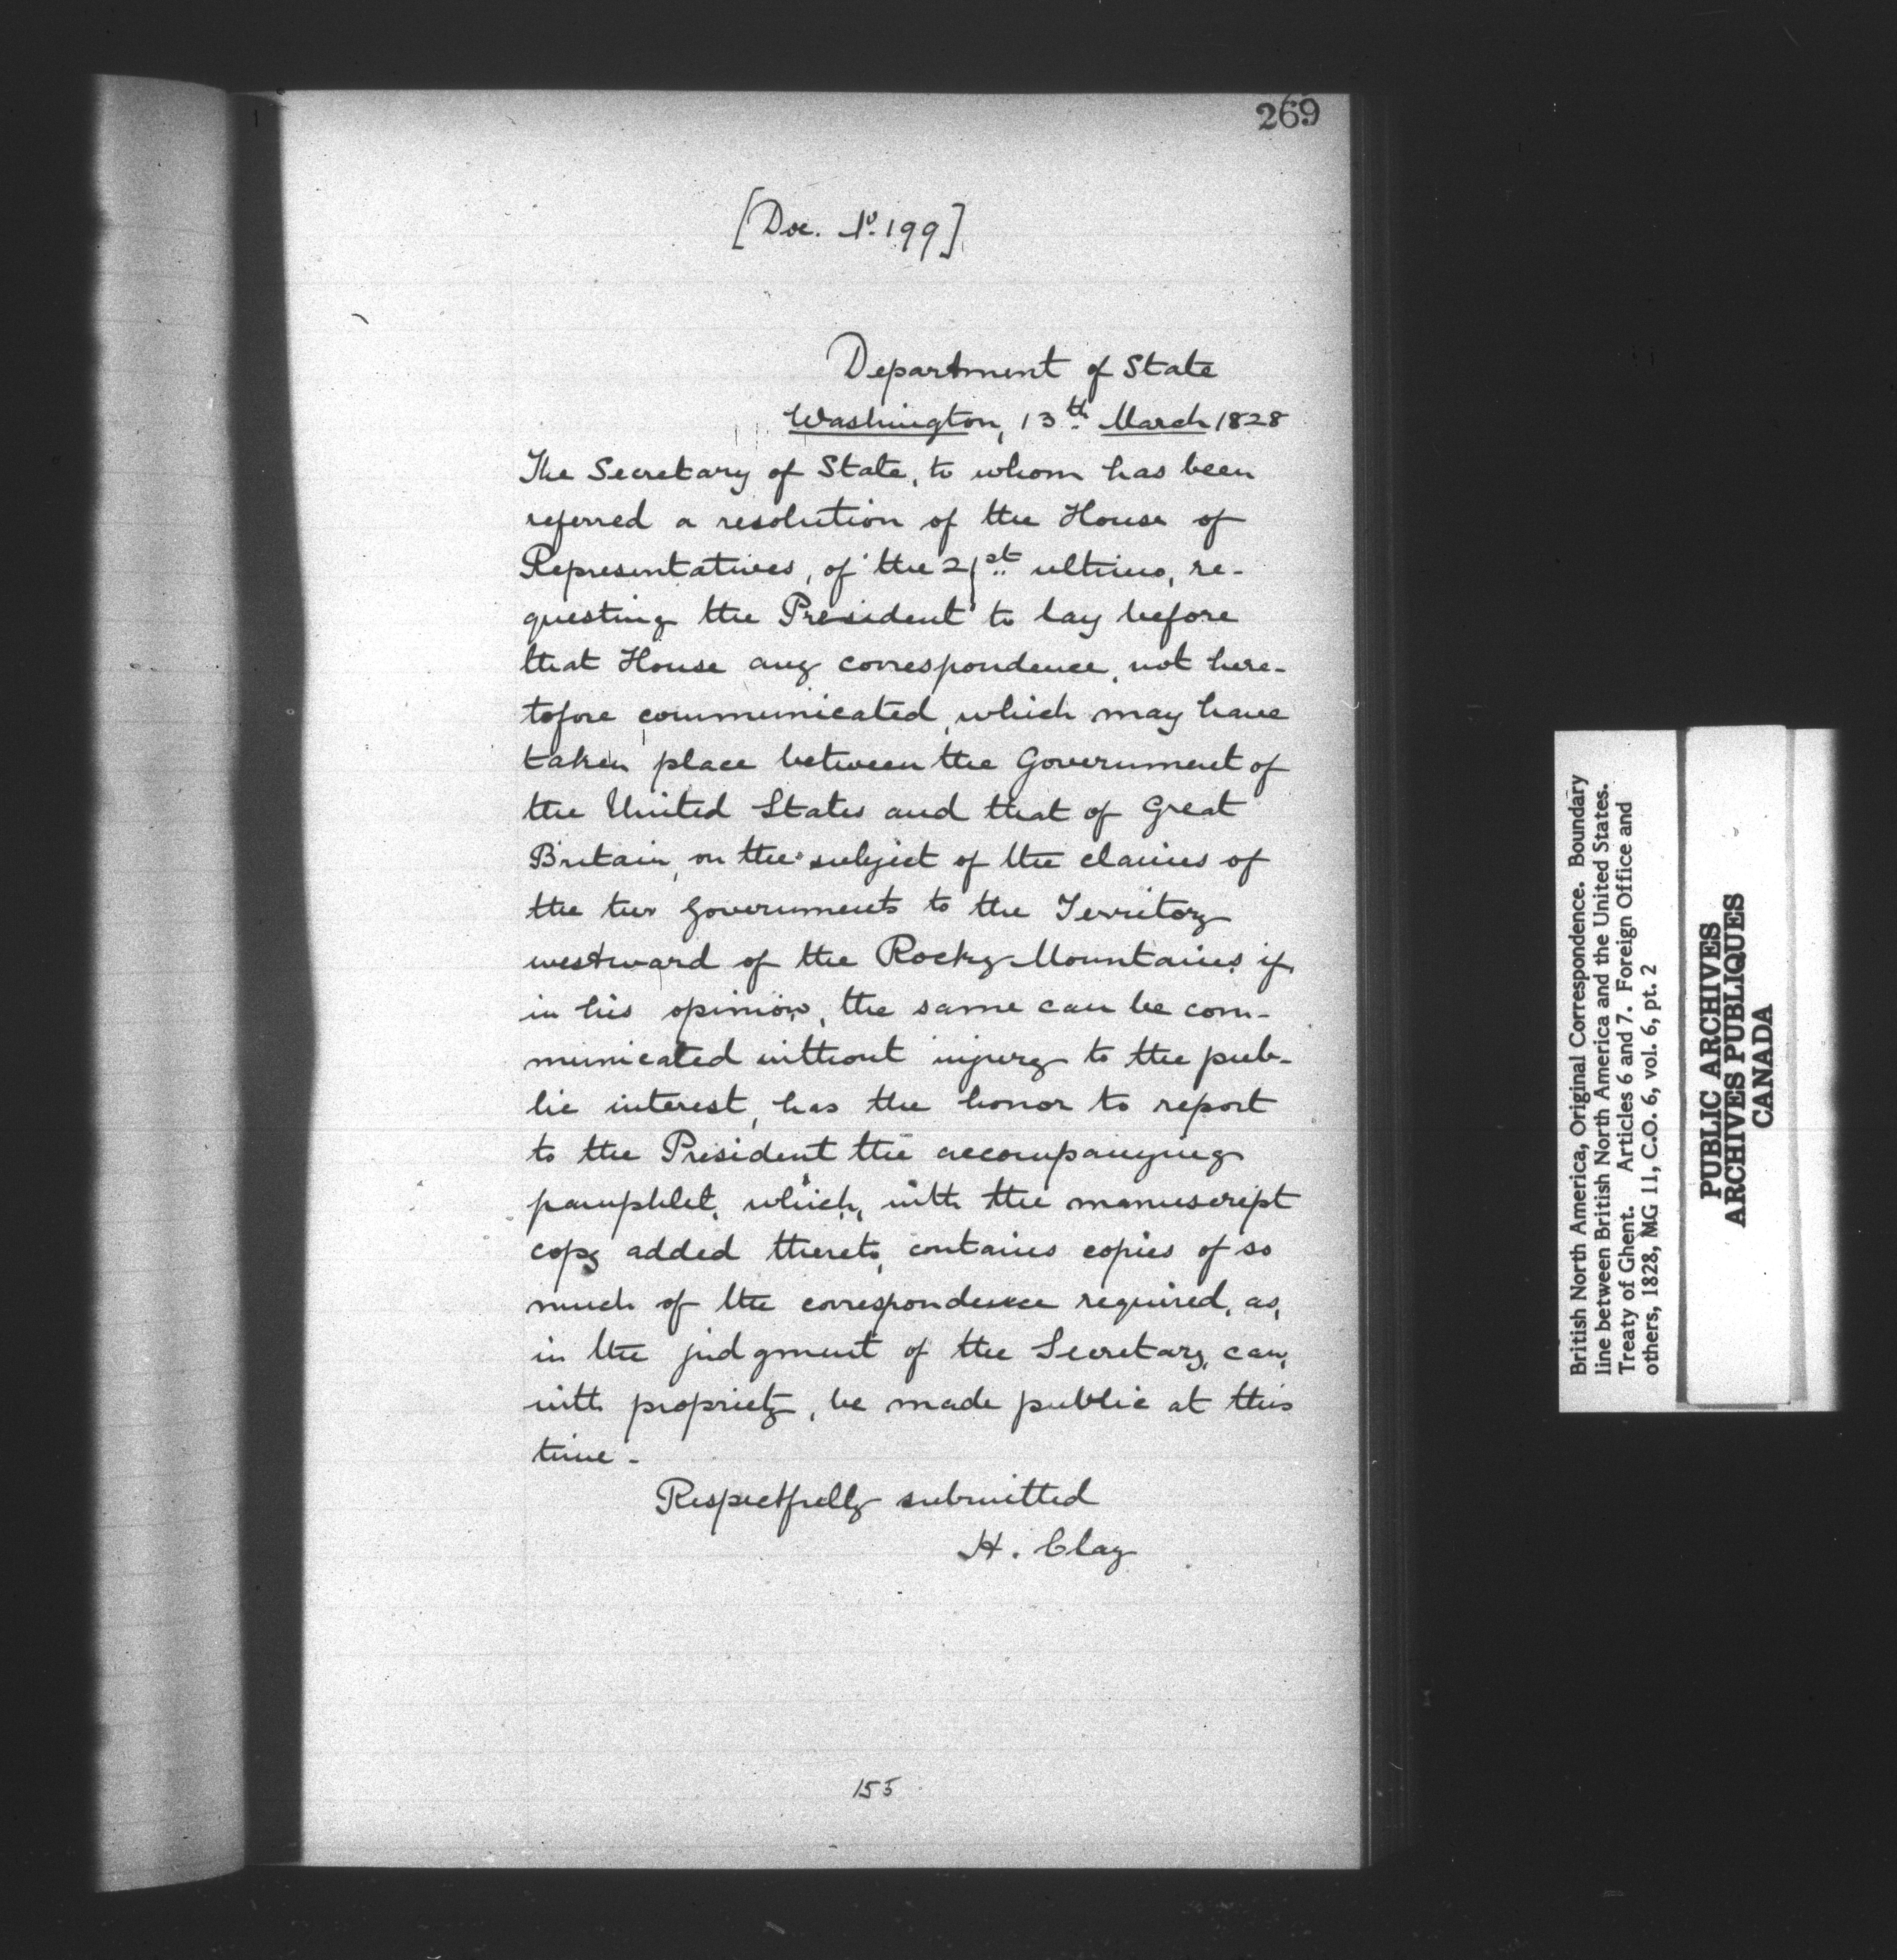 269
[Doc. No. 199]
Department of State
Washington, 13th March 1828
The Secretary of State, to whom has been
referred a resolution of the House of
Representatives, of the 21st ultimo, re-
questing the President to lay before
that House any correspondence, not here-
tofore communicated, which may have
taken place between the Government of
the United States and that of Great
Britain, on the subject of the claims of
the two Governments to the Territory
westward of the Rocky Mountains, if,
in his opinion, the same can be com-
municated without injury to the pub-
lic interest, has the honor to report
to the President the accompanying
pamphlet, which, with the manuscript
copy added thereto, contains copies of so
much of the correspondence required, as,
in the judgment of the Secretary, can,
with propriety, be made public at this
time -
Respectfully submitted
H. Clay
155
British North America, Original Correspondence. Boundary
line between British North America and the United States.
Treaty of Ghent. Articles 6 and 7. Foreign Office and
others, 1828, MG 11, C.O. 6, vol. 6, pt. 2
PUBLIC ARCHIVES
ARCHIVES PUBLIQUES
CANADA